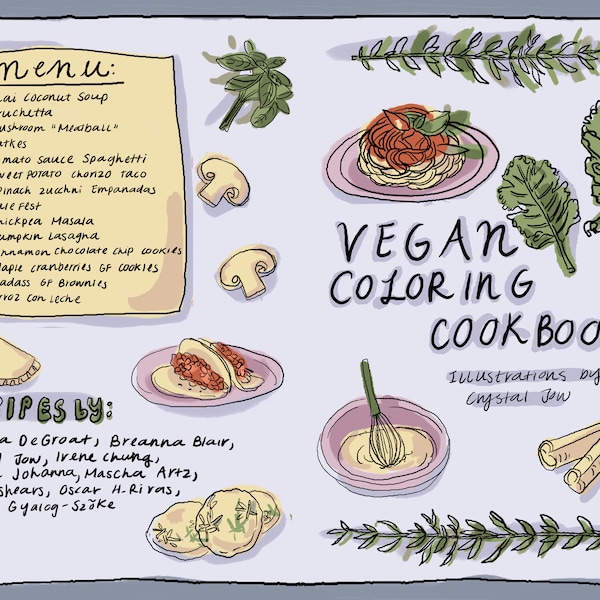 menu:
ai Coconut Soup
ruchetta
ushroom "Meatball"
atkes
mato sauce Spaghetti
weet potato chorizo Taco
pinach zucchni Empanadas
ale Fest
hickpea Masala
umpkin Lasagna
innamon chocolate chip cookies
aple cranberries GF cookies
adass GF Brownies
rroz con leche
VEGAN
COLORING
COOKBOO
Illustrations by
Crystal Jow
IPES by:
a DeGroat, Breanna Blair,
l Jow, Irene Chung,
Johanna, Mascha Artz,
shears, Oscar H. Rivas,
Gyalog-Szőke